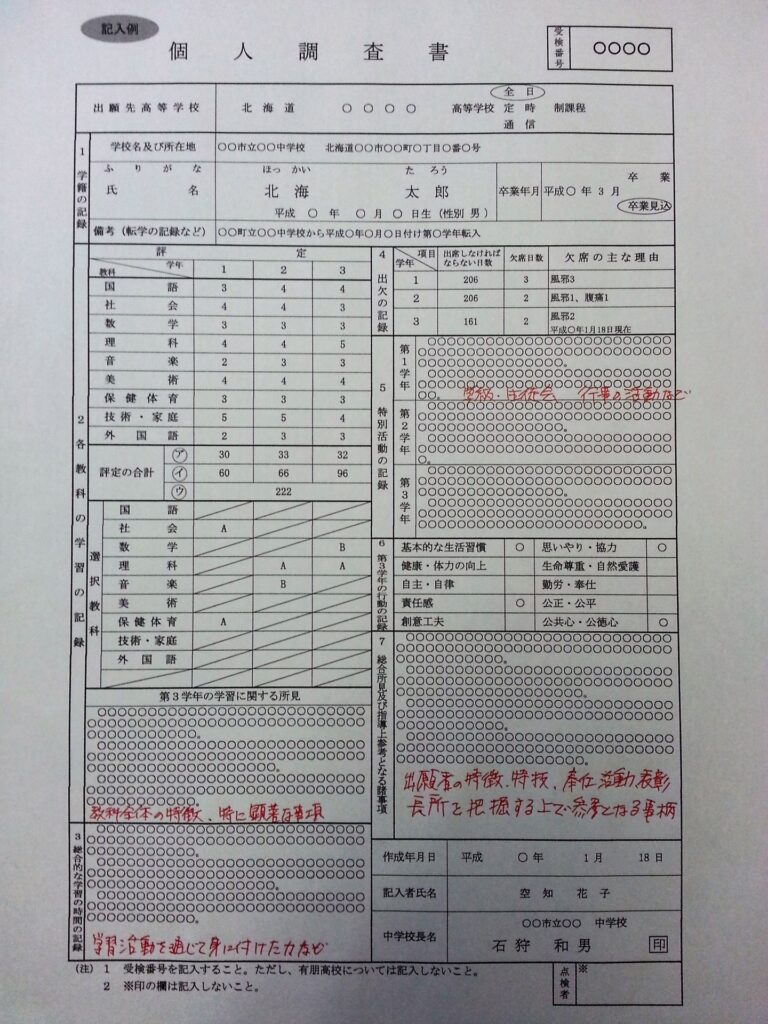 記入例
個人調査書
受検番号 ○○○○
出願先高等学校 北海道 ○○○○ 高等学校 全日 定時 通信 制課程
1 学籍の記録
学校名及び所在地 ○○市立○○中学校 北海道○○市○○町○丁目○番○号
ふりがな ほっかい たろう
氏名 北海 太郎
平成 ○ 年 ○月 ○ 日生（性別 男）
卒業年月 平成○ 年 3 月 卒業 卒業見込
備考（転学の記録など） ○○町立○○中学校から平成○年○月○日付け第○学年転入
2 各教科の学習の記録
評定
教科 学年 1 2 3
国語 3 4 4
社会 4 4 3
数学 3 3 3
理科 4 4 5
音楽 2 3 3
美術 4 4 4
保健体育 3 3 3
技術・家庭 5 5 4
外国語 2 3 3
評定の合計
㋐ 30 33 32
㋑ 60 66 96
㋒ 222
選択教科
国語
社会 A
数学 B
理科 A A
音楽 B
美術
保健体育 A
技術・家庭
外国語
第3学年の学習に関する所見
教科全体の特徴、特に顕著な事項
3 総合的な学習の時間の記録
学習活動を通じて身に付けた力など
4 出欠の記録
学年 項目 出席しなければならない日数 欠席日数 欠席の主な理由
1 206 3 風邪3
2 206 2 風邪1、腹痛1
3 161 2 風邪2
平成○年1月18日現在
5 特別活動の記録
第1学年
学級・生徒会 行事の活動など
第2学年
第3学年
6 第3学年の行動の記録
基本的な生活習慣 ○ 思いやり・協力 ○
健康・体力の向上 生命尊重・自然愛護
自主・自律 勤労・奉仕
責任感 ○ 公正・公平
創意工夫 公共心・公徳心 ○
7 総合所見及び指導上参考となる諸事項
出願者の特徴、特技、奉仕活動、表彰
長所を把握する上で参考となる事柄
作成年月日 平成 ○年 1月 18日
記入者氏名 空知 花子
中学校長名 ○○市立○○ 中学校
石狩 和男 印
（注） 1 受検番号を記入すること。ただし、有朋高校については記入しないこと。
2 ※印の欄は記入しないこと。
点検者 ※